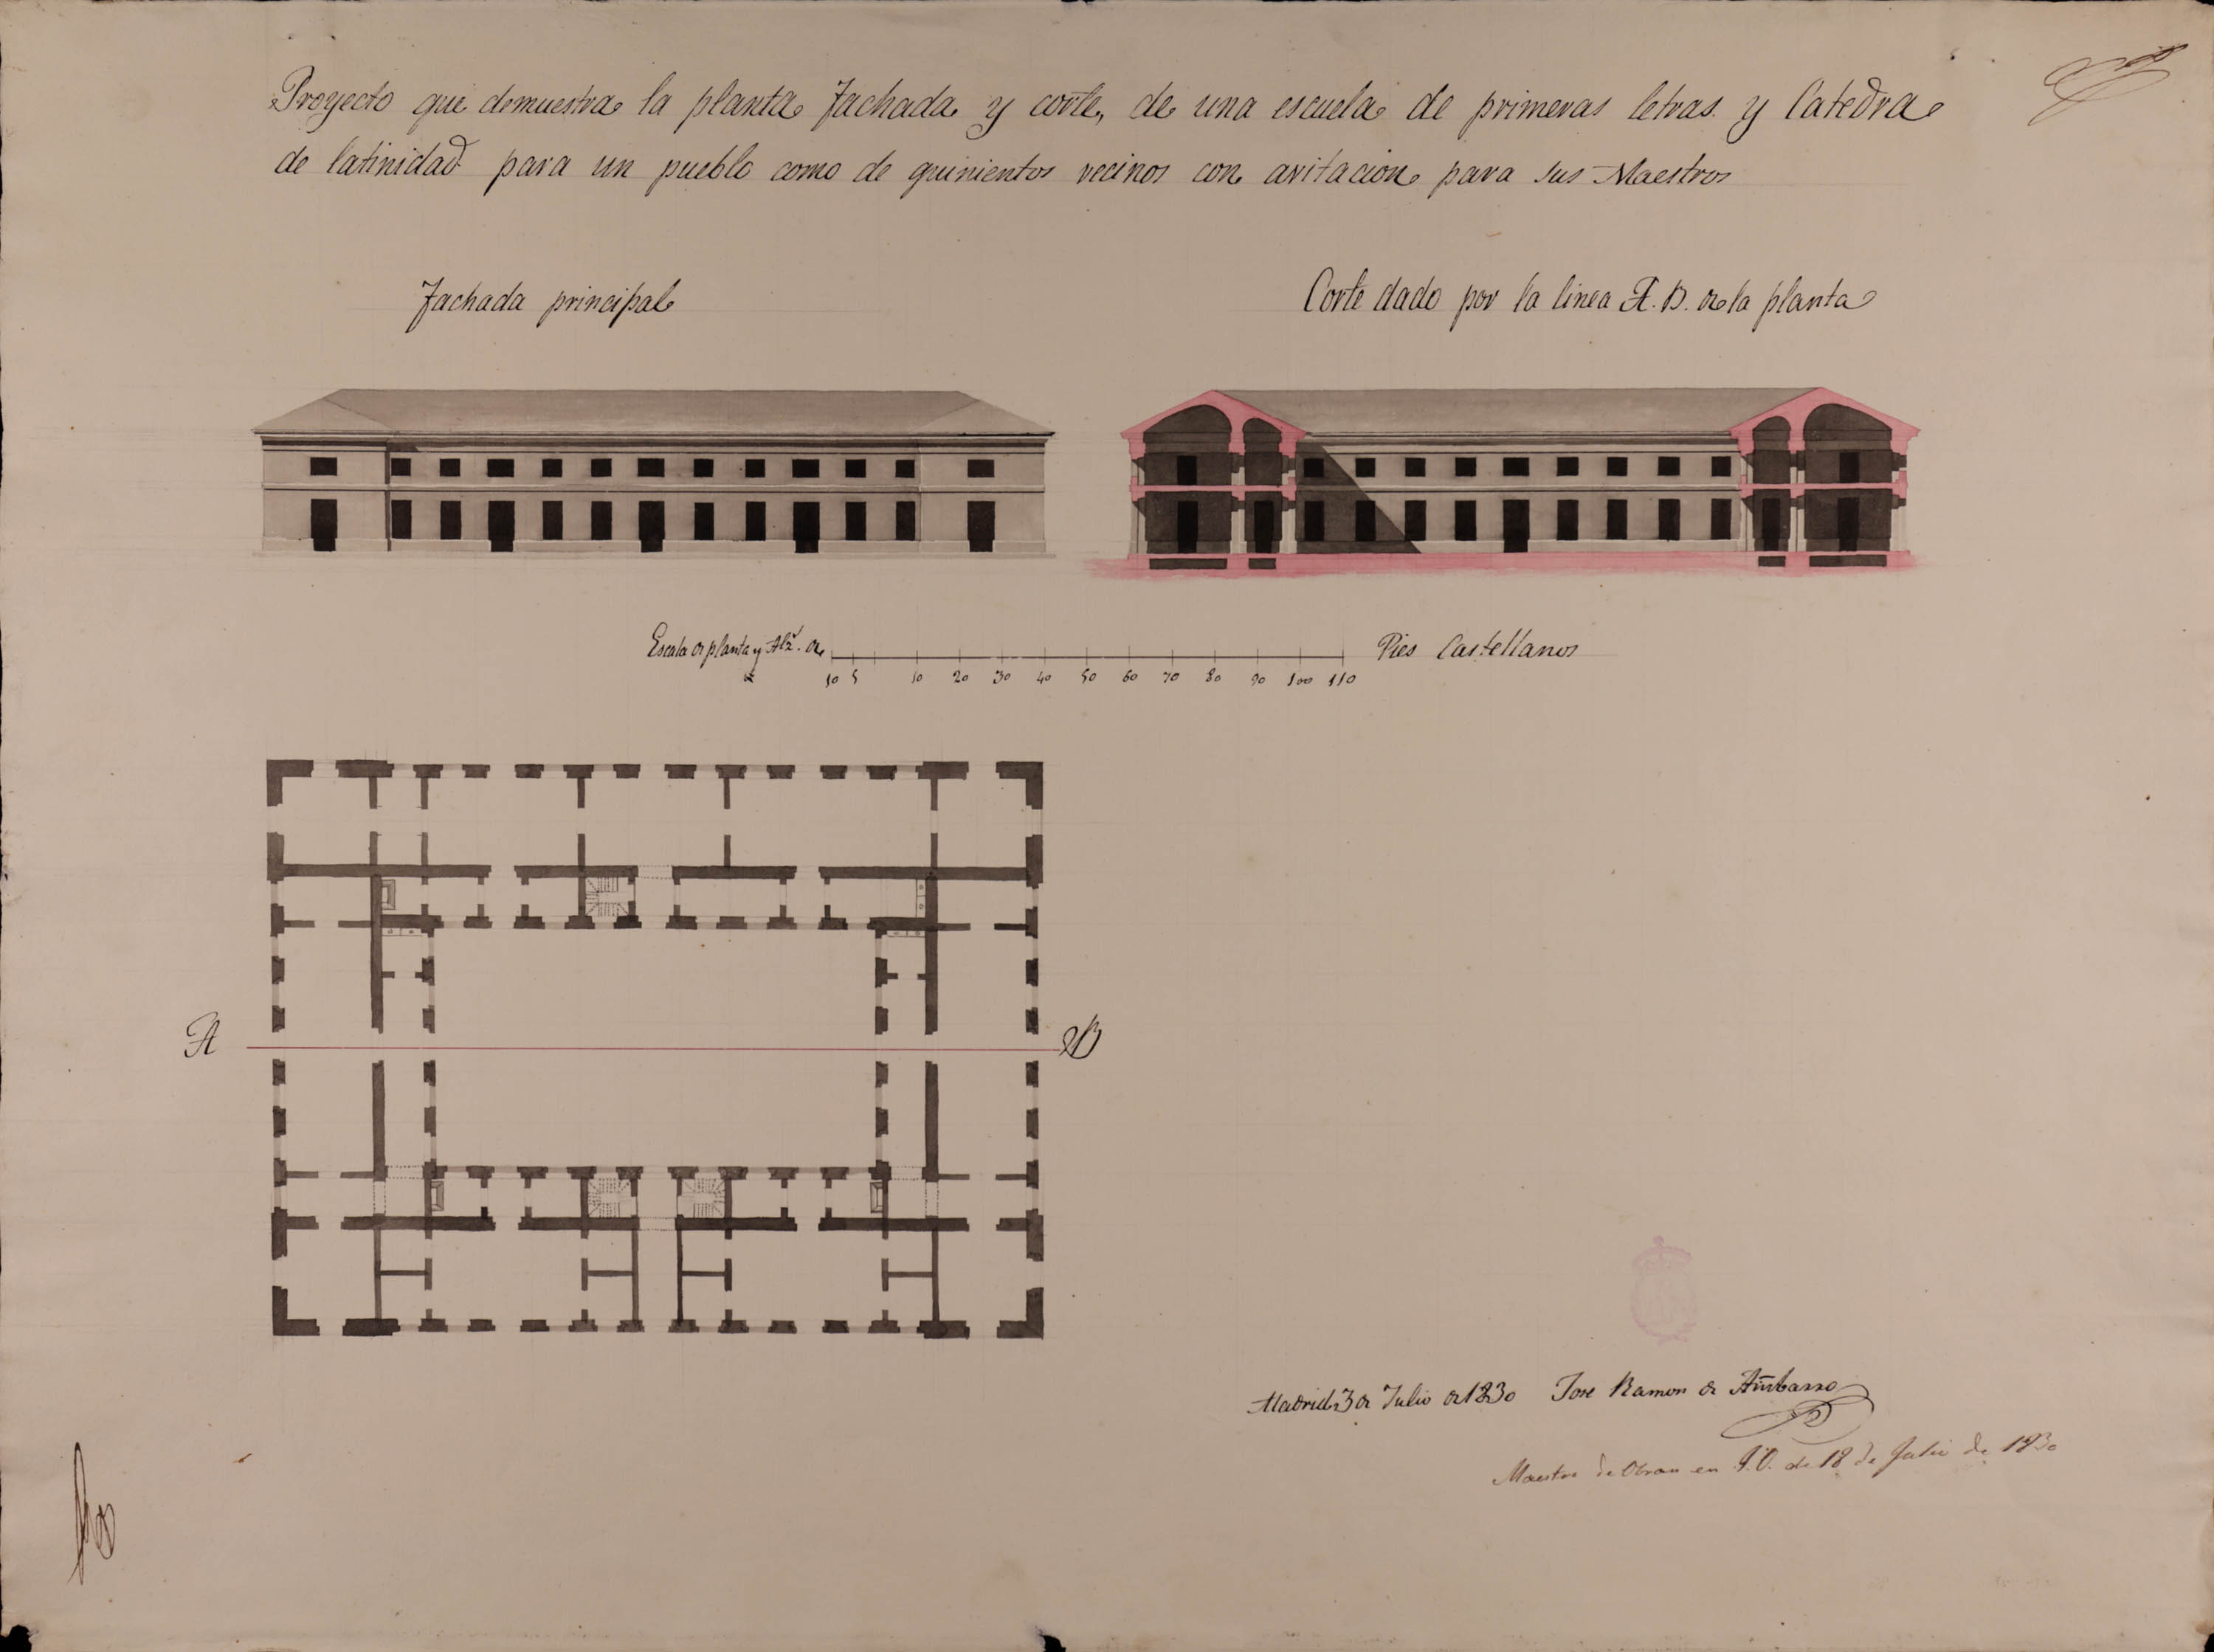 Proyecto que demuestra la planta fachada y corte, de una escuela de primeras letras. y Catedra
de latinidad para un pueblo como de quinientos vecinos con avitacion para sus Maestros
Fachada principal
Corte dado por la linea A. B. de la planta
Escala de planta y Alz.º de
Pies Castellanos
10 5 10 20 30 40 50 60 70 80 90 100 110
A
B
Madrid 3 de Julio de 1830 Jose Ramon de
Maestro de Obras en J.O. de 18 de Julio de 1830